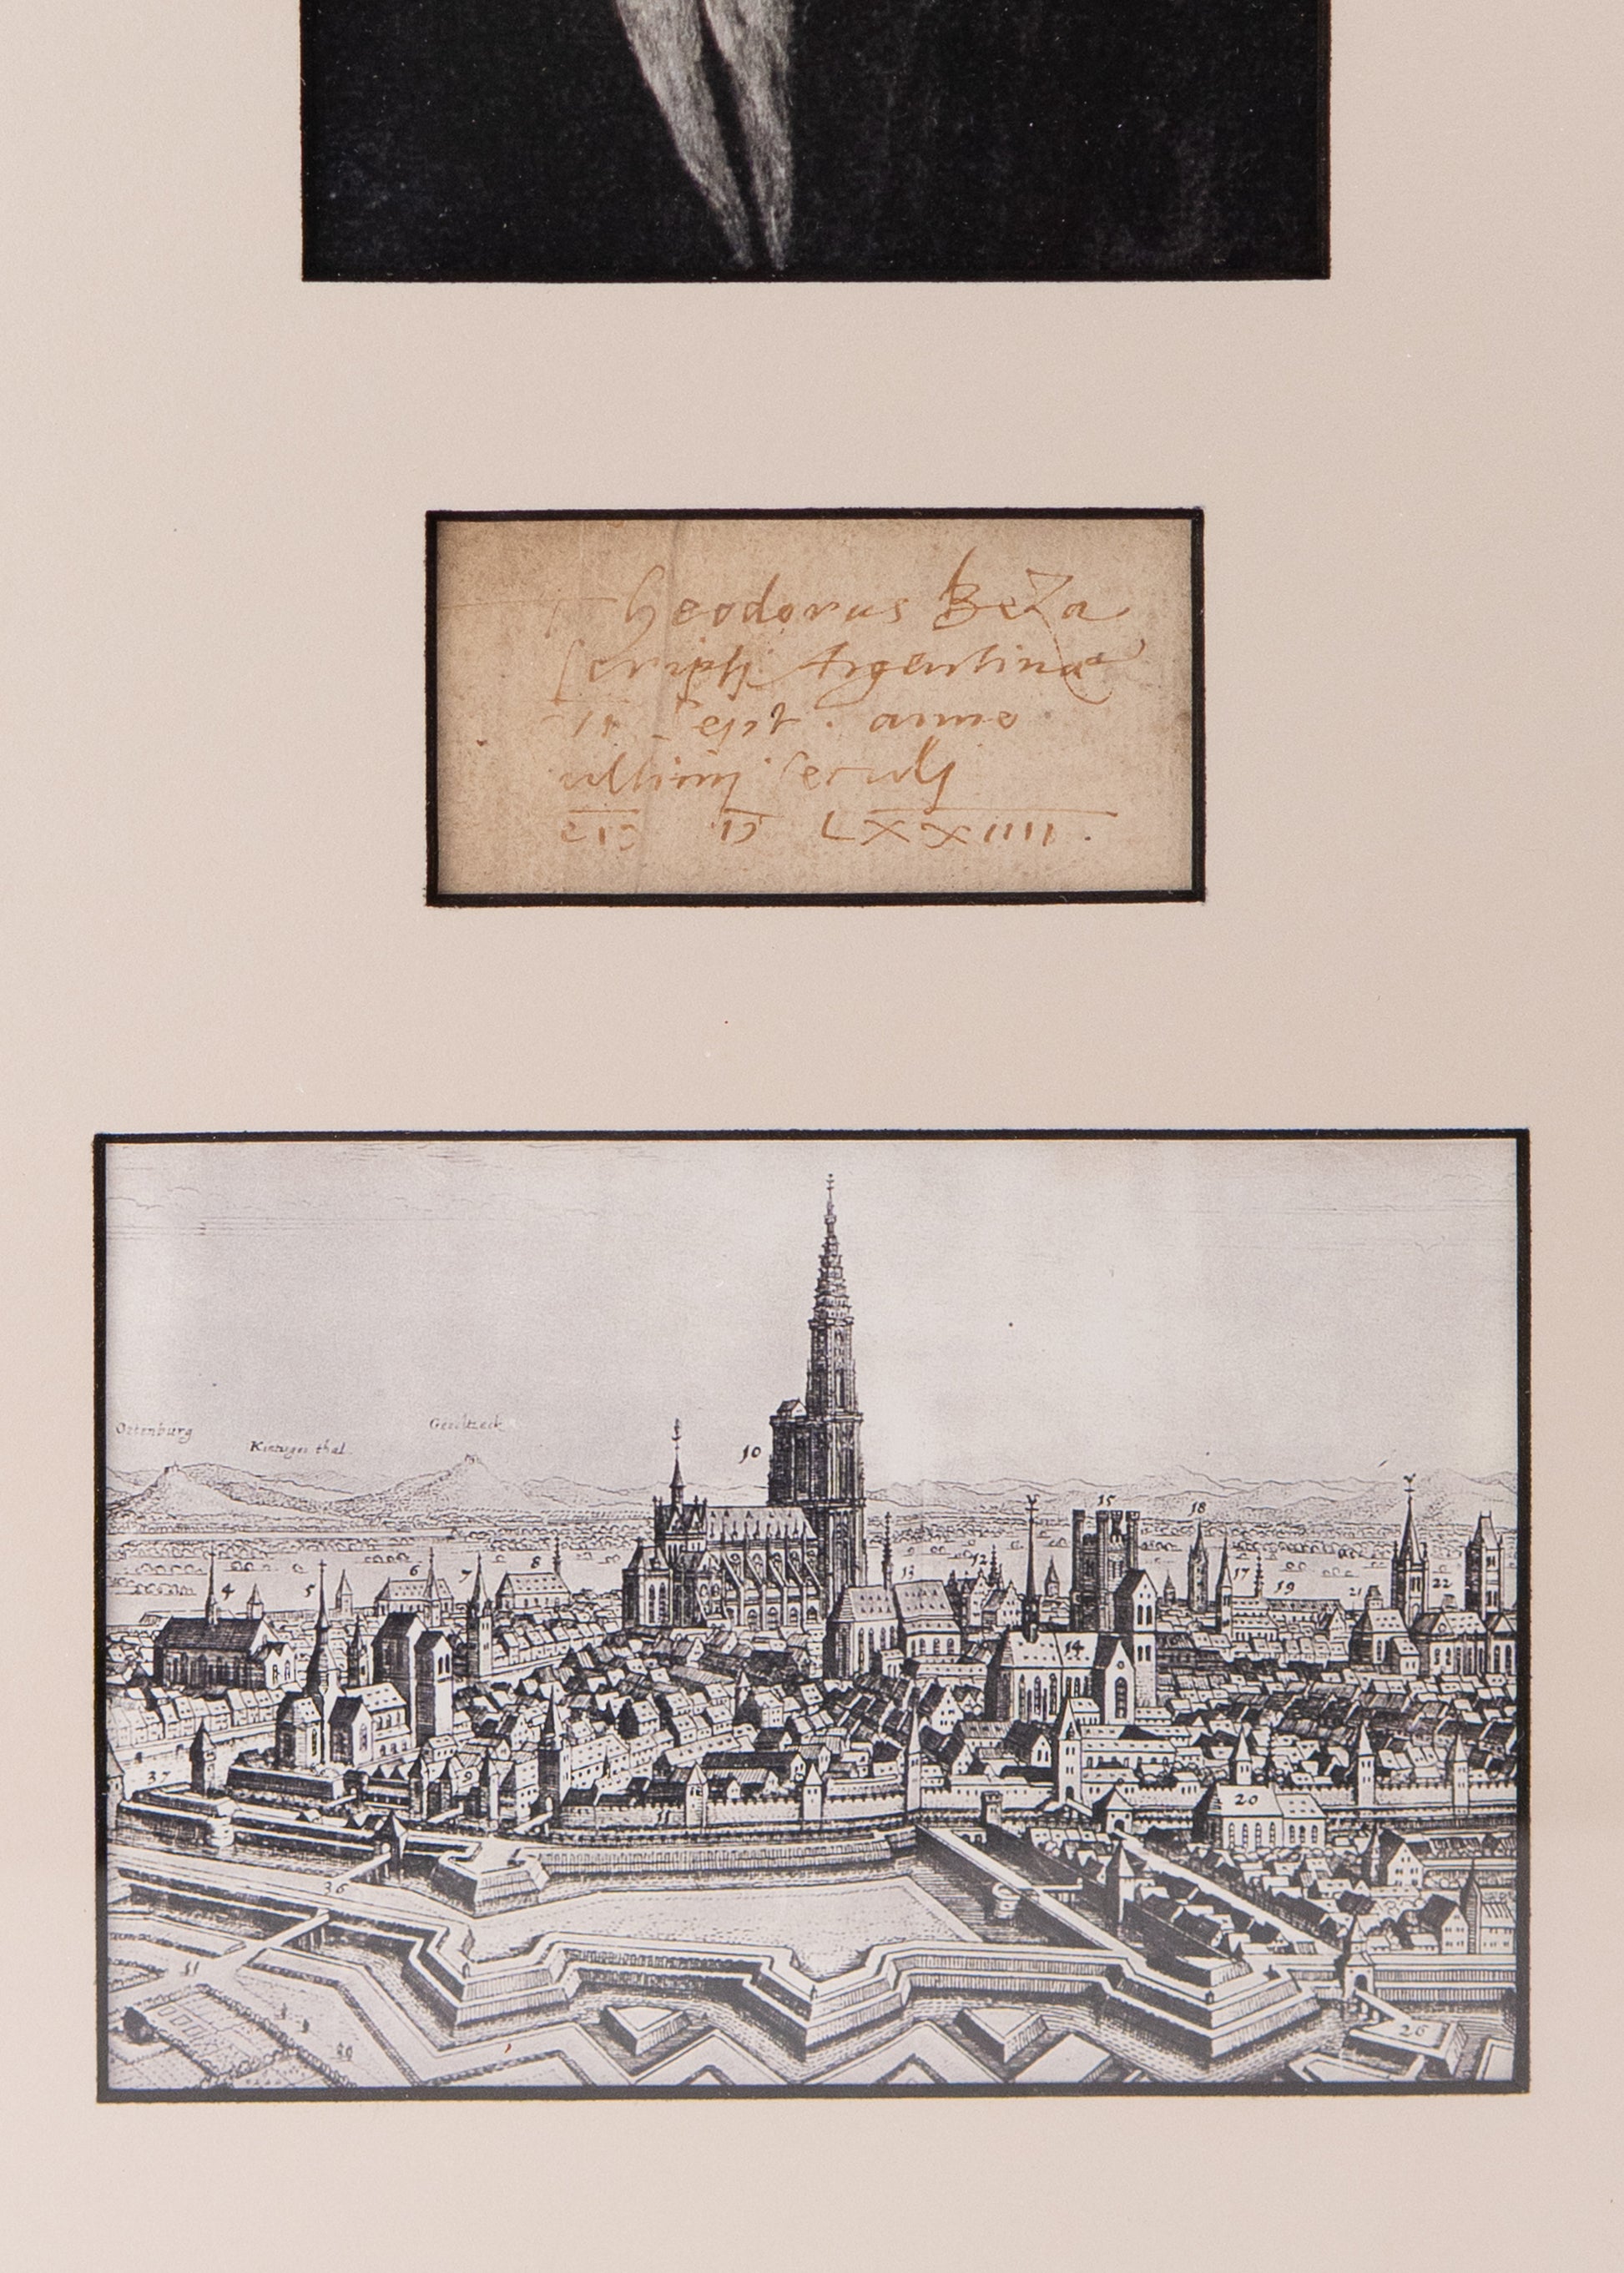 Theodorus BeZa
scripsi Argentinae
Sept. anno
ultimi seculj
CIↃ IↃ LXXIIII.
Ortenburg
Kintzger thal.
Geroltzeck
10
15
18
4
5
6
7
8
12
13
17
19
21
22
14
37
9
11
20
36
26